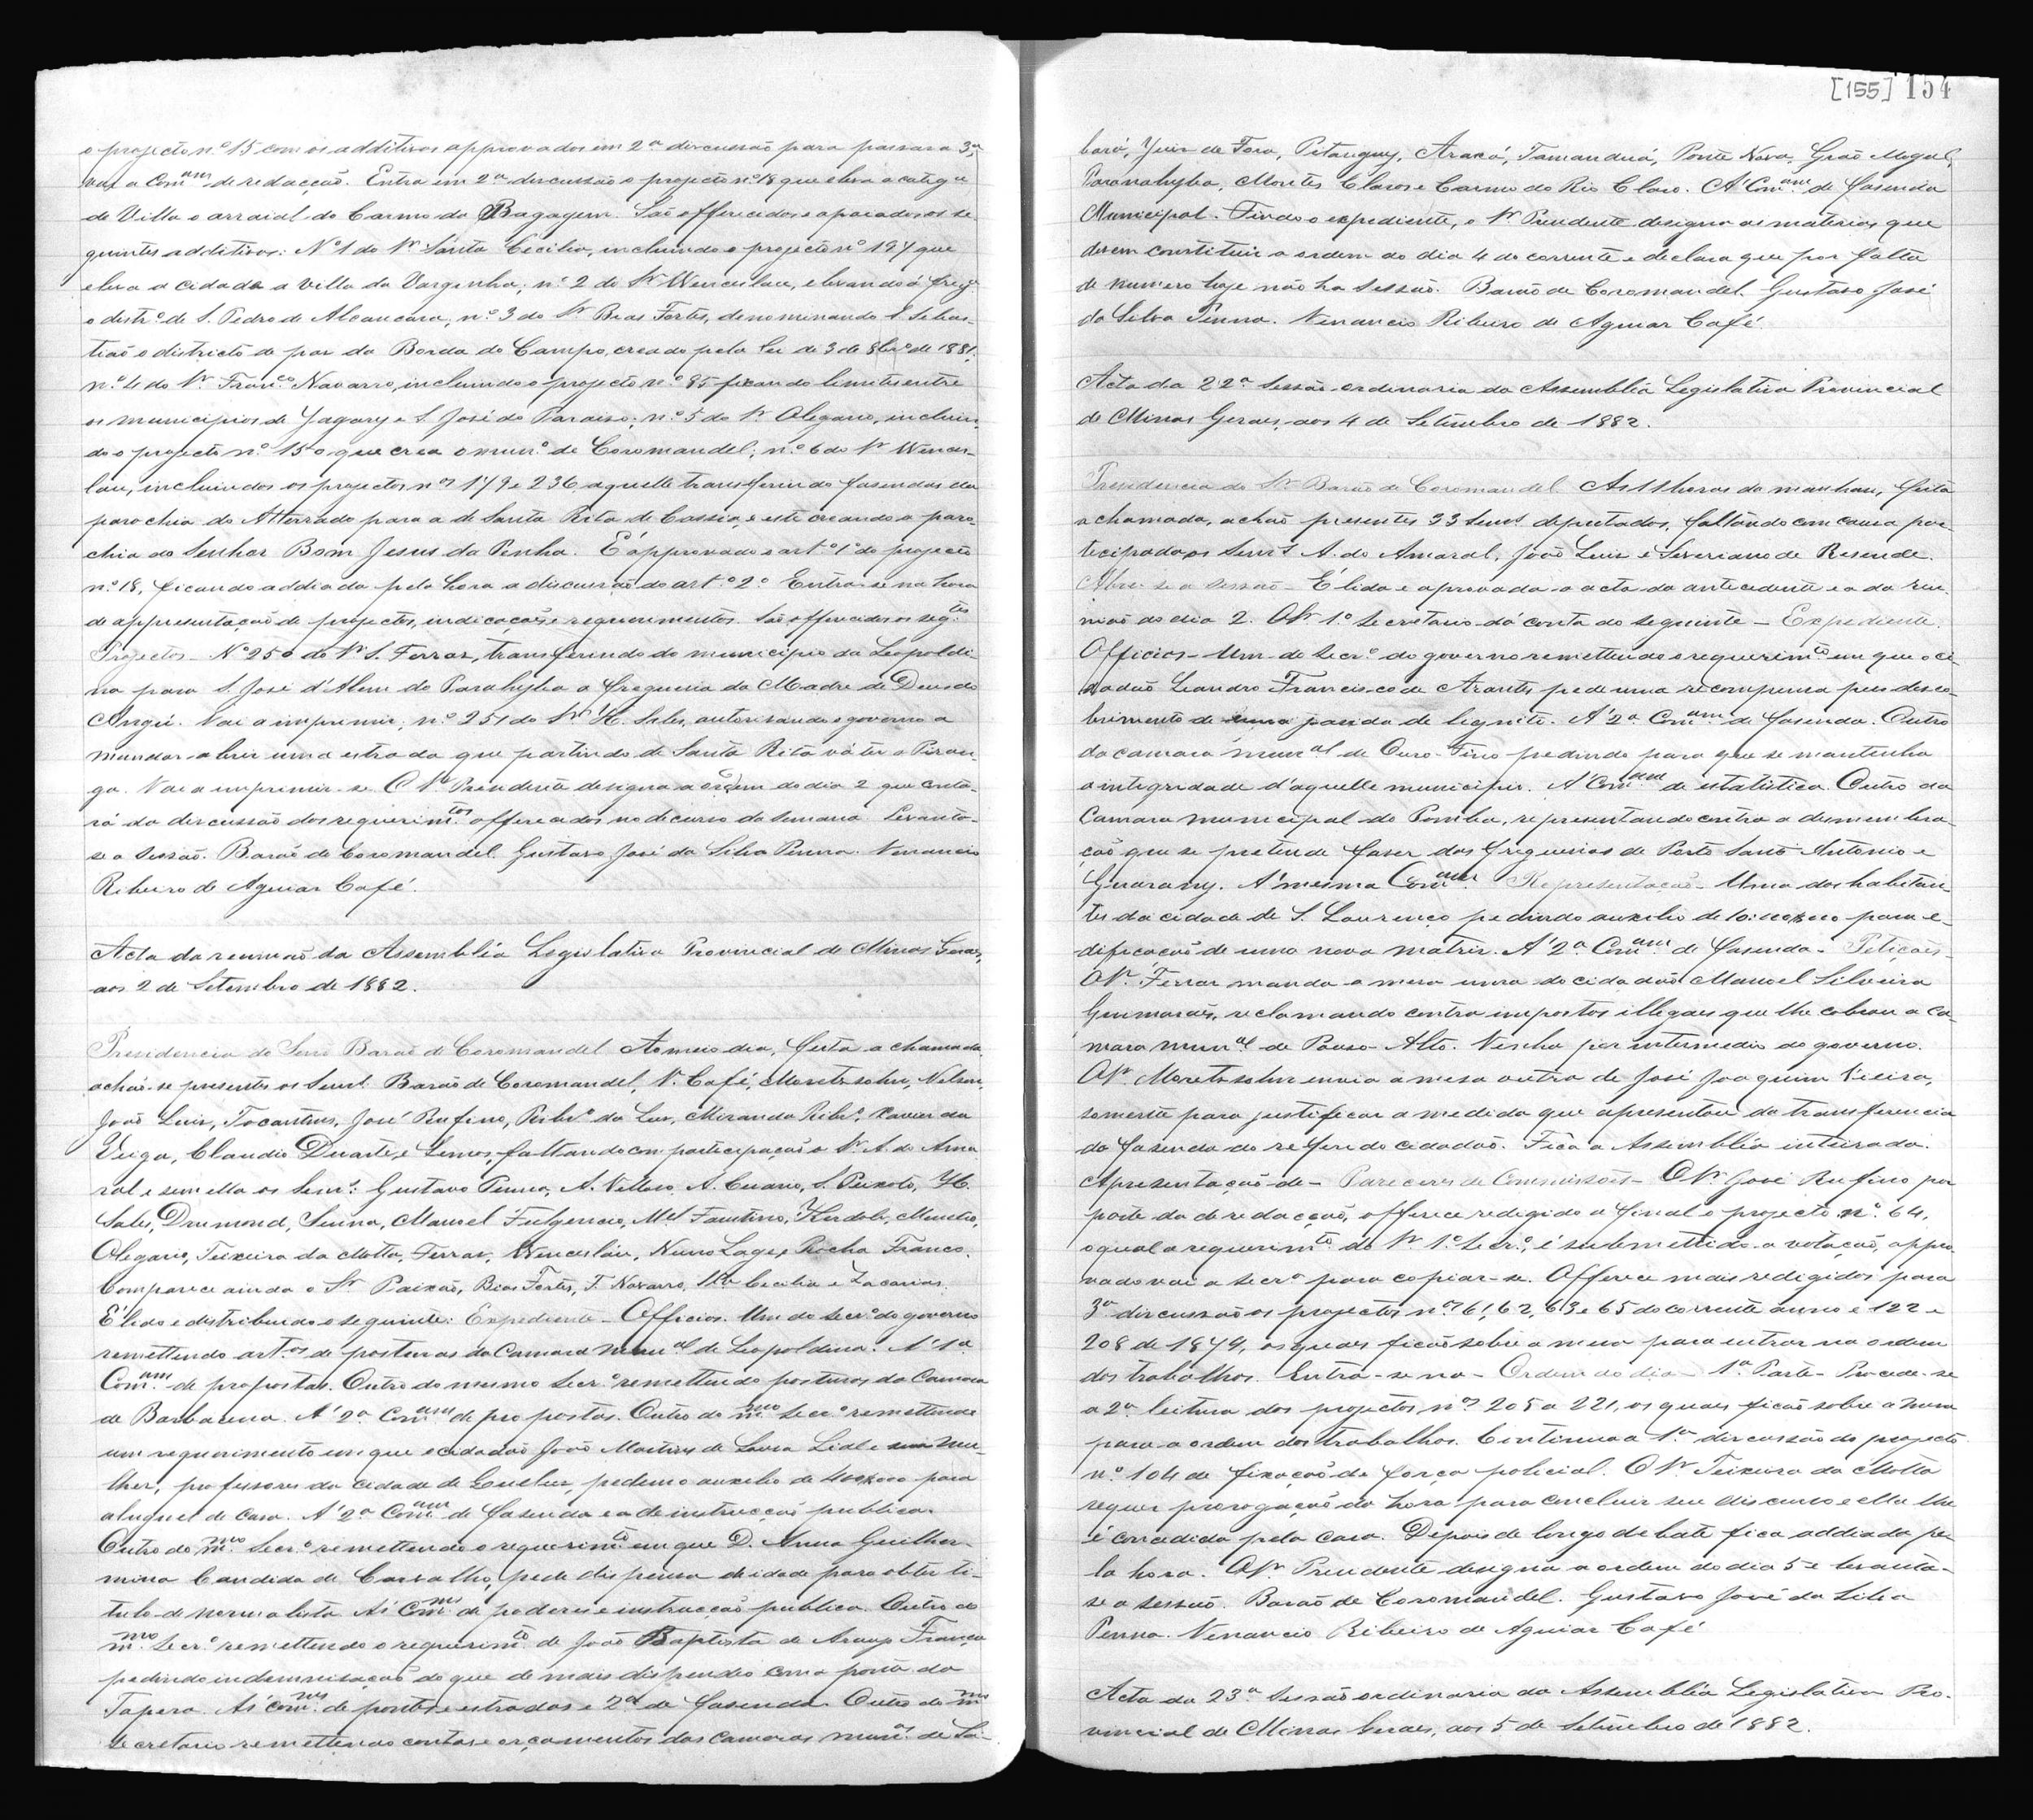 o projecto n.º 15 com os additivos approvados em 2ª discussão para passar a 3ª,
vai a Com.am de redacção. Entra em 2ª discussão o projecto nº 18 que eleva a categª
de Villa o arraial do Carmo da Bagagem. São offerecidos e apoiados os se
guintes additivos: Nº 1 do Sr. Santa Cecilia, incluindo o projecto nº 197 que
eleva a cidade a villa da Varginha; nº 2 do Sr Wenceslau, elevando á freg.ª
o distr.º de S. Pedro de Alcantara, n.º 3 do Sr Bias Fortes, denominando S. Sebas-
tião o districto de paz da Borda do Campo, creado pela lei de 3 de 8br.º de 1881;
n.º 4 do Sr Franc.º Navarro, incluindo o projecto nº 85 fixando limites entre
os municipios de Jaguary e S. José do Paraiso; n.º 5 do Sr Olegario, incluin-
do o projecto n.º 150 que crea o mun.º de Coromandel; n.º 6 do Sr Wences-
lau, incluindo os projectos nos 179 e 236 aquelle transferindo fasendas da
parochia do Atterrado para a de Santa Rita de Cassia, e este creando a paro-
chia do Senhor Bom Jesus da Penha. É approvado o art.º 1º do projecto
n.º 18, ficando addiada pela hora a discussão do art.º 2.º Entra-se na hora
de appresentação de projectos, indicações e requerimentos. São offerecidos os seg.tes
Projectos - Nº 250 do Sr S. Ferraz, transferindo do municipio da Leopoldi-
na para S. José d'Alem do Parahyba a freguesia da Madre de Deus do
Angú. Vai a imprimir; n.º 251 do Sr H. Sales, autorisando o governo a
mandar abrir uma estrada que partindo de Santa Rita vá ter a Piran-
ga. Vai a imprimir-se. O Sr Presidente designa a ordem do dia 2 que consta-
rá da discussão dos requerim.tos offerecidos no decurso da semana. Levanta-
se a sessão. Barão de Coromandel. Gustavo José da Silva Penna. Venancio
Ribeiro de Aguiar Café.
Acta da reunião da Assembléa Legislativa Provincial de Minas Geraes,
aos 2 de Setembro de 1882.
Presidencia do Senr Barão de Coromandel Ao meio dia, feita a chamada
achão-se presentes os Senrs. Barão de Coromandel, V. Café, Moretzsohn, Nelson,
João Luiz, Tocantins, José Rufino, Ribr.º da Luz, Miranda Ribr.º, Xavier da
Veiga, Claudio Duarte, e Lemos, faltando com participação o Sr. A. do Ama
ral e sem ella os Senrs: Gustavo Penna, A. Velloso, A. Cesario, S. Peixoto, H.
Sales, Drumond, Senna, Manoel Fulgencio, Mel Faustino, Kardole,
Olegario, Teixeira da Motta, Ferraz, Wenceslau, Nuno Lage, e Rocha Franco.
Comparece ainda o Sr Paixão, Bias Fortes, F. Navarro, Sta Cecilia e Zacarias.
É lido e distribuido o seguinte: Expediente - Officios. Um do Secr.º do governo
remettendo art.os de posturas da Camara Munal de Leopoldina. Á 1ª
Com.am de propostas. Outro do mesmo Secr.º remettendo posturas da Camara
de Barbacena. Á 2ª Com.am de propostas. Outro do m.mo Secr.º remettendo
um requerimento em que o cidadão João Martins de Lara Leal e sua mu-
lher, professores da cidade de Queluz, pedem o auxilio de 400$000 para
aluguel de casa. Á 2ª Com.am de fasenda e a de instrucção publica.
Outro do m.mo Secr.º remettendo o requerim.to em que D. Anna Guilher-
mina Candida de Carvalho, pede dispensa de idade para obter ti-
tulo de normalista. Ás Com.ns de poderes e instrucção publica. Outro do
m.mo Secr.º remettendo o requerim.to de João Baptista de Araujo França
pedindo indemnisação do que de mais dispendeo com a ponte da
Tapera. Ás com.ns de pontes e estradas e 2ª de fasenda. Outro do m.mo
Secretario remettendo contas e orçamentos das Camaras munes de Sa-
[155] 154
bará, Juiz de Fora, Pitanguy, Araxá, Tamanduá, Ponte Nova, Grão Mogul,
Paranahyba, Montes Claros e Carmo do Rio Claro. Á Com.am de fasenda
Municipal. Findo o expediente, o Sr Presidente designa as materias que
devem constituir a ordem do dia 4 do corrente e declara que por falta
de numero hoje não ha sessão. Barão de Coromandel. Gustavo José
da Silva Penna. Venancio Ribeiro de Aguiar Café
Acta da 22ª Sessão ordinaria da Assembléa Legislativa Provincial
de Minas Geraes, aos 4 de Setembro de 1882.
Presidencia do Sr Barão de Coromandel. As 11 horas da manhan, feita
a chamada, achão presentes 33 Senrs deputados, faltando com causa par-
tecipada os Senrs A. do Amaral, João Luiz e Severiano de Resende.
Abre-se a sessão - É lida e aprovada a acta da antecedente e a da reu-
nião do dia 2. O Sr 1.º Secretario dá conta do seguinte - Expediente.
Officios - Um do Secr.º do governo remettendo o requerim.to em que o ci-
dadão Leandro Francisco de Arantes pede uma recompensa pelo desco-
brimento de uma jasida de lignite. Á 2ª Com.am de fasenda. Outro
da camara munal de Ouro-Fino pedindo para que se mantenha
a integridade d'aquelle municipio. Á Com.am de estatistica. Outro da
Camara municipal do Pomba, representando contra a desmembra-
ção que se pretende faser das freguesias de Porto Santo Antonio e
Guarany. Á mesma Com.am. Representação - Uma dos habitan-
tes da cidade de S. Lourenço pedindo auxilio de 10:000$000 para e-
dificação de uma nova matriz. Á 2ª Com.am de fasenda - Petições -
O Sr. Ferraz manda a mesa uma do cidadão Manoel Silveira
Guimarães, reclamando contra impostos illegaes que lhe cobrou a Ca-
mara munal de Pouso-Alto. Venha por intermedio do governo.
O Sr. Moretzsohn envia á mesa outra de José Joaquim Vieira,
somente para justificar a medida que apresentou da transferencia
da fasenda do referido cidadão. Fica a Assembléa inteirada.
Apresentação de - Pareceres de Commissões - O Sr José Rufino por
parte da de redacção, offerece redigido a final o projecto n.º 64,
o qual a requerim.to do Sr 1.º Secr.º, é submettido a votação, appro-
vado vai a secrª para copiar-se. Offerece mais redigidos para
3ª discussão os projectos nos 61, 62, 63 e 65 do corrente anno e 122 e
208 de 1879, os quaes ficão sobre a mesa para entrar na ordem
dos trabalhos. Entra-se na - Ordem do dia - 1ª Parte - Procede-se
a 2ª leitura dos projectos nos 205 a 221, os quaes ficão sobre a mesa
para a ordem dos trabalhos. Continua a 1ª discussão do projecto
n.º 104 de fixação de força policial. O Sr Teixeira da Motta
requer prorogação da hora para concluir seu discurso e ella lhe
é concedida pela casa. Depois de longo debate fica addiada pe-
la hora. O Sr. Presidente designa a ordem do dia 5 e levanta-
se a sessão. Barão de Coromandel. Gustavo José da Silva
Penna. Venancio Ribeiro de Aguiar Café
Acta da 23ª Sessão ordinaria da Assembléa Legislativa Pro-
vincial de Minas Geraes, aos 5 de Setembro de 1882.